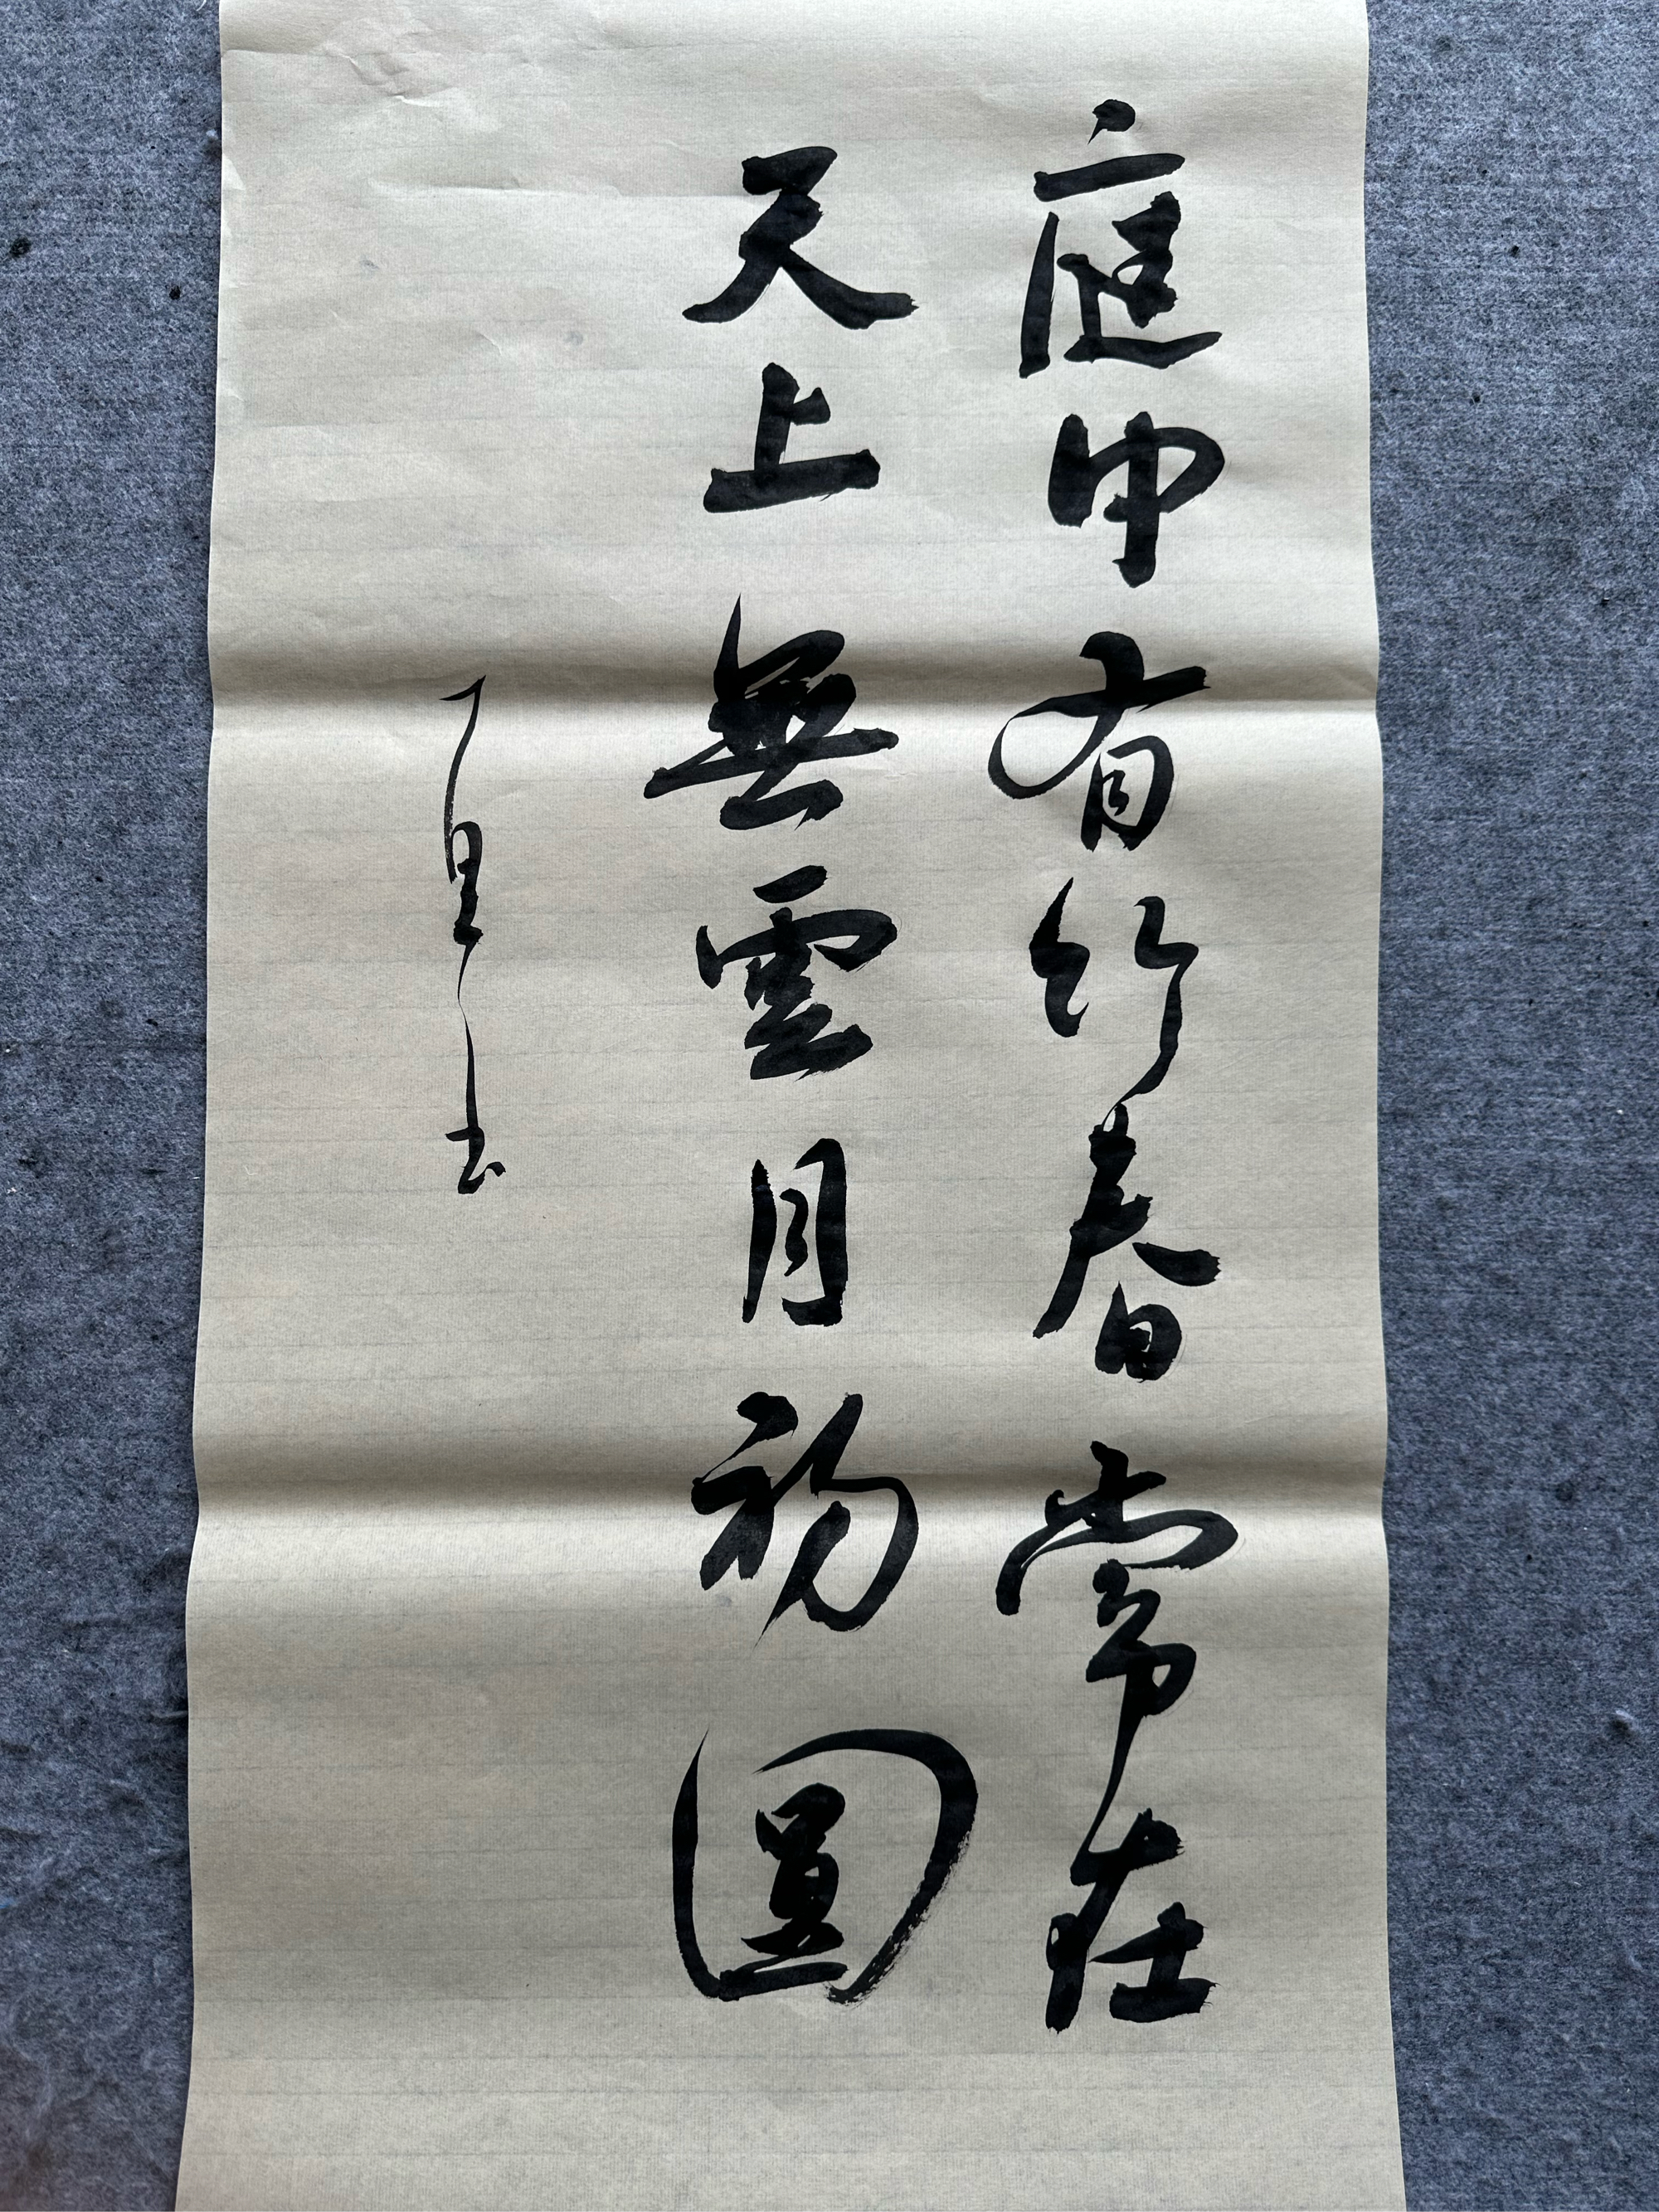 庭中有竹春常在
天上無雲月初圓